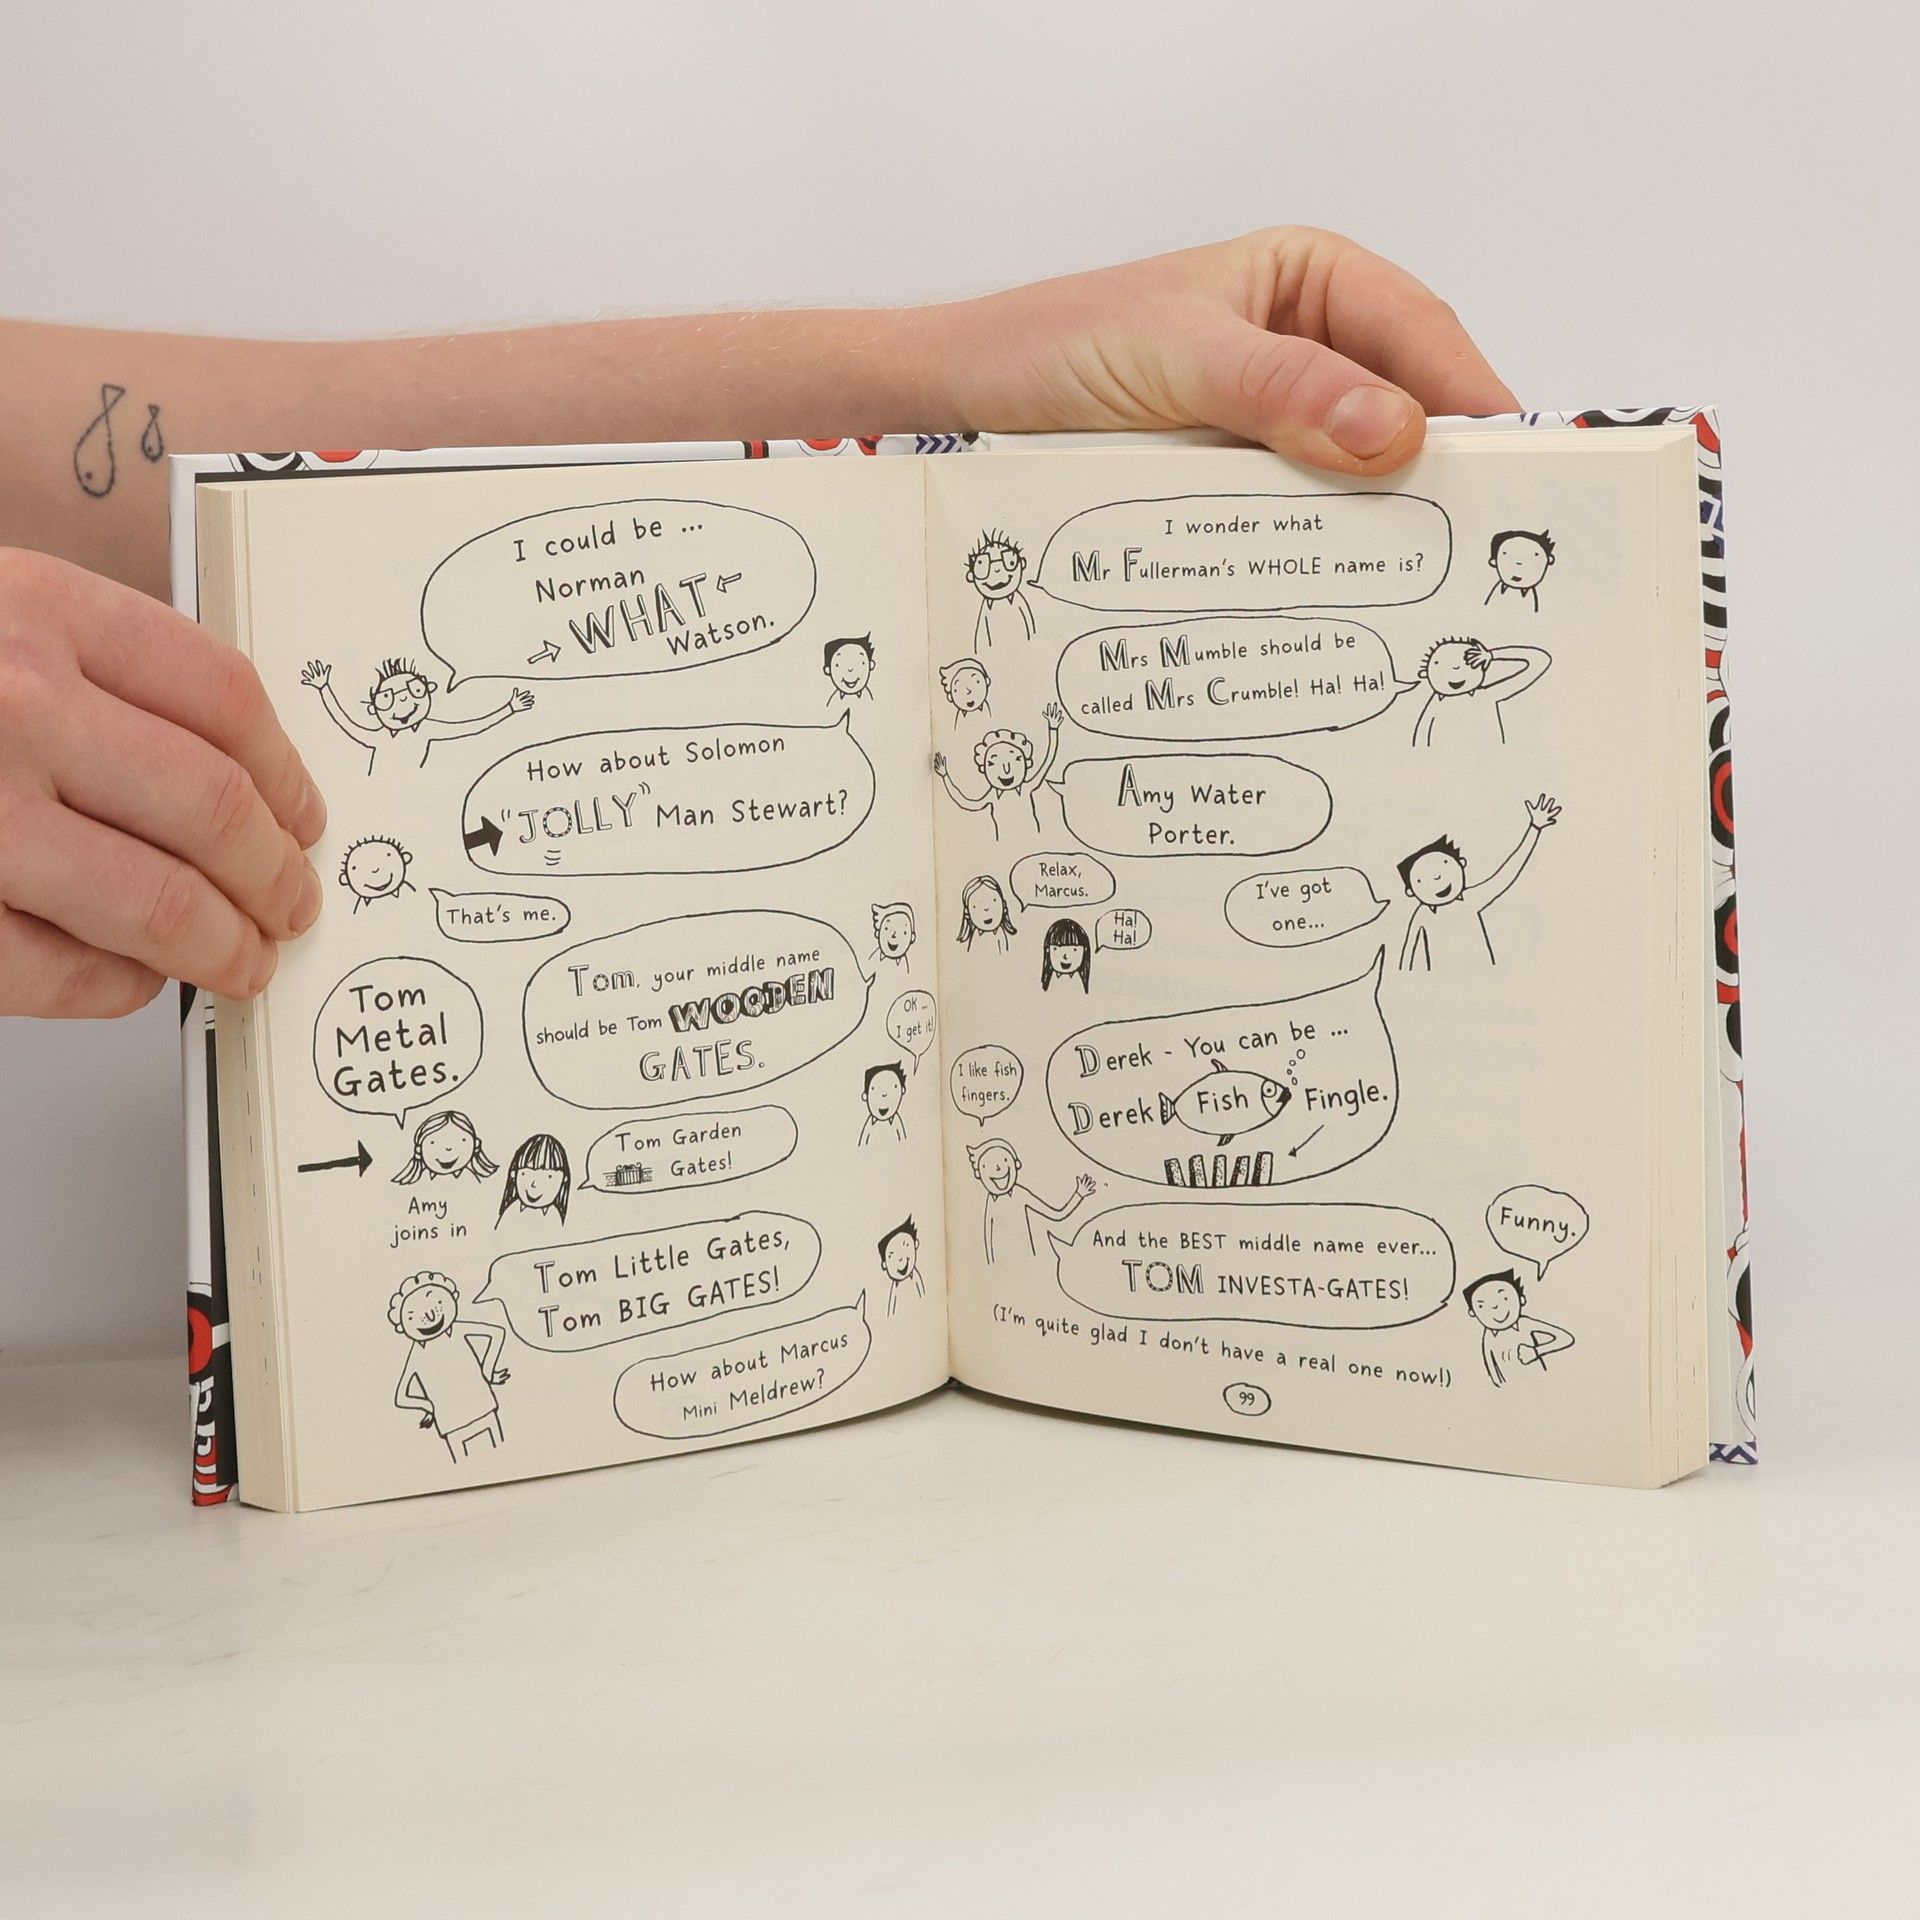 I could be ...
Norman
WHAT
Watson.
How about Solomon
"JOLLY" Man Stewart?
That's me.
Tom, your middle name
should be Tom WOODEN
GATES.
OK –
I get it!
Tom
Metal
Gates.
Amy
joins in
Tom Garden
Gates!
Tom Little Gates,
Tom BIG GATES!
How about Marcus
Mini Meldrew?
I wonder what
Mr Fullerman's WHOLE name is?
Mrs Mumble should be
called Mrs Crumble! Ha! Ha!
Amy Water
Porter.
Relax,
Marcus.
Ha!
Ha!
I've got
one...
Derek - You can be ...
Derek Fish Fingle.
I like fish
fingers.
And the BEST middle name ever...
TOM INVESTA-GATES!
Funny.
(I'm quite glad I don't have a real one now!)
99